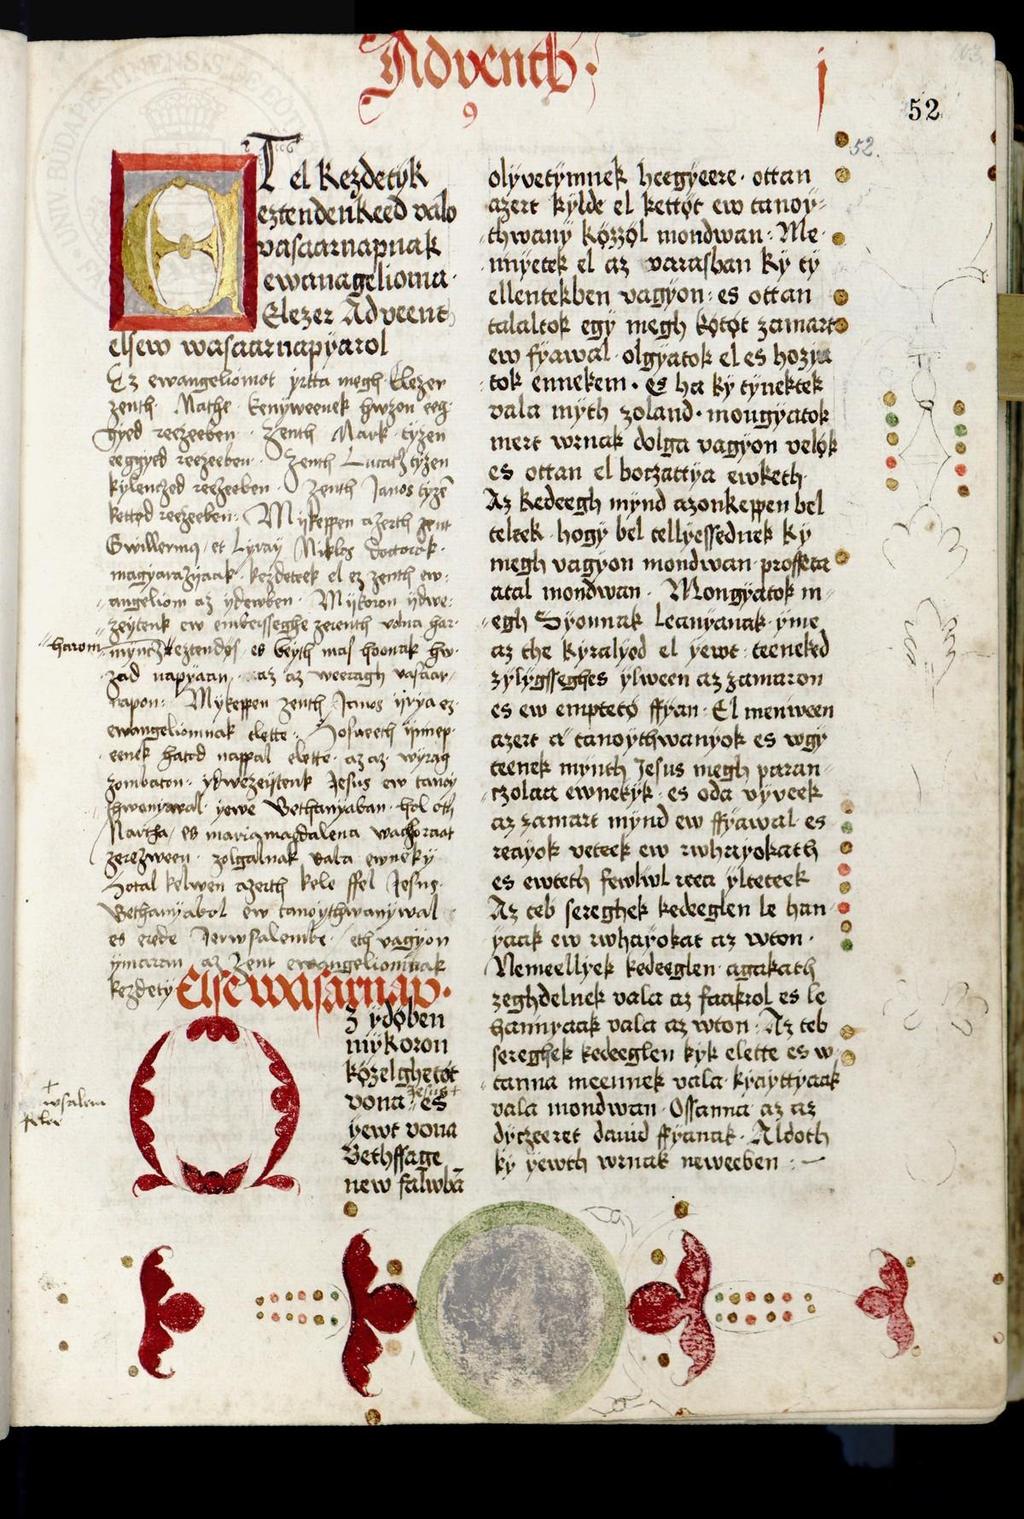 Adventh ·
9
j
52
52.
T el kezdetÿk
eztendenkeed valo
vasaarnapnak
ewanagelioma ·
Elezer Adveent
elsew wasaarnapÿarol
Ez ewangeliomot ÿrtta megh Elezer
zenth · Mathe · kenÿweenek hwzon eeg-
gÿed reezeeben · zenth Mark tÿzen
eeggÿed reezeeben · zenth Lucatz tÿzen
kÿlenczed reezeeben · zenth Janos tÿzē
kettod reezeeben : Mÿkeppen azerth zent
Gwillermus et Lÿraÿ Niklos doctorok ·
magÿarazÿaak · kezdeteek el ez zenth ew-
angeliom az ÿdewben · Mÿkoron ÿdwe-
zeÿtenk ew emberisseghe zerenth vona har-
harom
mÿncz eztendøs · es keÿth mas hoonak hw-
zad napÿaan · az az weeragh vasaar-
napon : Mÿkeppen zenth Janos ÿrÿa ez
ewangeliomnak elette · Hosweeth ÿnnep-
eenek hatod nappal elette · az az · wÿrag
zombaton · ÿdwezeÿtenk Jesus ew tanoÿ-
thwanÿwal · ÿewe Bethanÿaban · hol oth
Martha es maria magdalena wachoraat
zerezween · zolgalnak vala ewnekÿ
Hotal kelwen azerth kele ffel Jesus ·
Bethanÿabol ew tanoÿthwanÿwal
es erede Jerwsalembe · eth vagÿon
ÿmaran az zent ewangeliomnak
kezdetÿ Else wasarnap ·
Z ÿdøben
mÿkoron
közelghetöt
Jesus +
vona es
ÿewt vona
Bethffage
new falwbā
+
wsalem
fele
olÿvetÿmnek heegÿeere · ottan
azert kÿlde el kettøt ew tanoÿ-
thwanÿ közzöl mondwan : Me-
nnÿetek el az varasban kÿ tÿ
ellentekben vagÿon : es ottan
talaltok egÿ megh kötöt zamart
ew fÿawal · olgÿatok el es hozÿa
tok ennekem · Es ha kÿ tÿnektek
vala mÿth zoland · mongÿatok
mert wrnak dolga vagÿon velök
es ottan el boczattÿa ewketh ·
Az kedeegh mÿnd azonkeppen bel
teleek · hogÿ bel tellÿessednek kÿ
megh vagÿon mondwan proffeta
atal mondwan · Mongÿatok m-
egh Sÿonnak Leanÿanak · ÿme
az the kÿralÿod el ÿewt · teeneked
zÿlÿgsseghes ÿlween az zamaron
es ew emptetö ffÿan · El menween
azert a tanoÿthwanÿok es wgÿ
teenek mÿnth Jesus megh paran-
czolaa ewnekÿk · es oda vÿveek
az zamart mÿnd ew ffÿawal · es
reaÿok veteek ew rwhaÿokath
es ewteth fewlwl reea ÿlteteek
Az teb sereghek kedeeglen le han-
ÿaak ew rwhaÿokat az wton ·
Nemeellÿek kedeeglen · agakath
zeghdelnek vala az faakrol es le
hannÿaak vala az wton · Az teb
sereghek kedeeglen kÿk elette es w-
tanna meennek vala · kÿaÿttÿaak
vala mondwan · Ossanna az az
dÿczeeret david ffÿanak · Aldoth
kÿ ÿewth wrnak neweeben : —